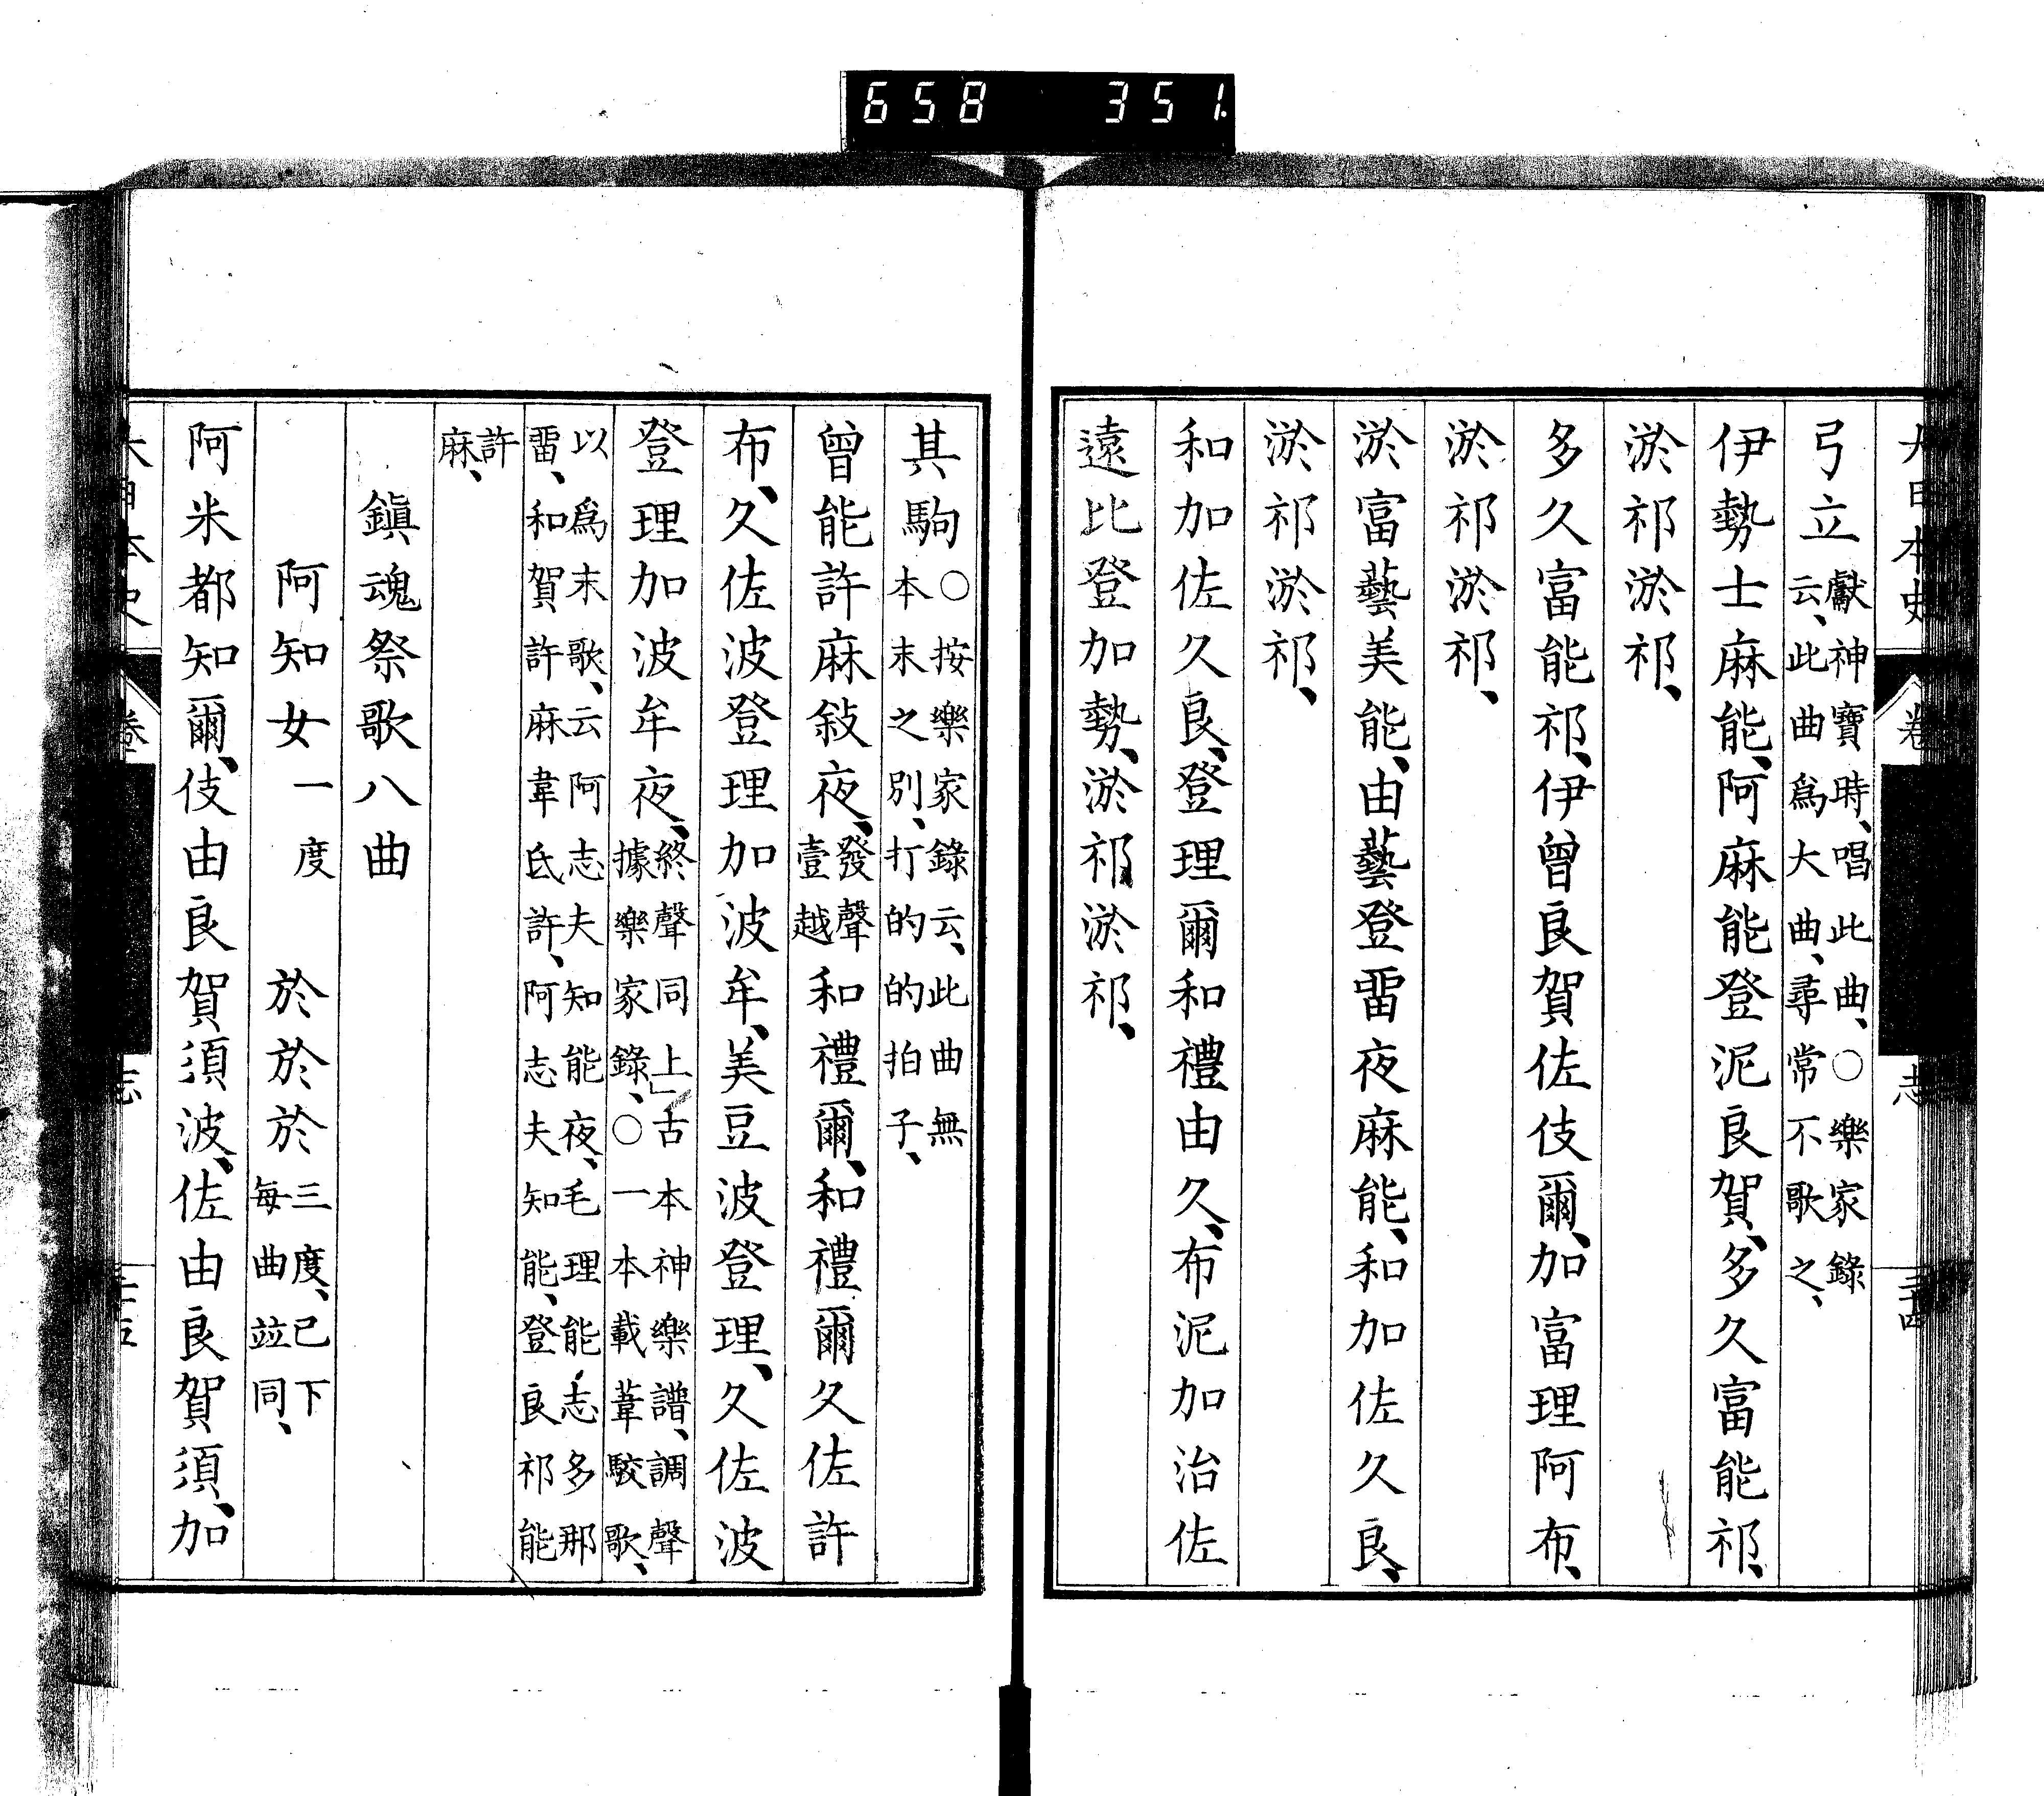 658 351
大日本史 卷 志 三十四
弓立 獻神寶時、唱此曲、○樂家錄
云、此曲爲大曲、尋常不歌之、
伊勢士麻能、阿麻能登泥良賀、多久富能祁、
淤祁淤祁、
多久富能祁、伊曾良賀佐伎爾、加富理阿布、
淤祁淤祁、
淤富藝美能、由藝登畱夜麻能、和加佐久良、
淤祁淤祁、
和加佐久良、登理爾和禮由久、布泥加治佐
遠比登加勢、淤祁淤祁、
其駒 ○按樂家錄云、此曲無
本末之別、打的的拍子、
曾能許麻敍夜、發聲
壹越 和禮爾、和禮爾久佐許
布、久佐波登理加波牟、美豆波登理、久佐波
登理加波牟夜、終聲同上」古本神樂譜、調聲
據樂家錄、○一本載葦駮歌、
以爲末歌、云阿志夫知能夜、毛理能志多那
畱、和賀許麻韋氐許、阿志夫知能、登良祁能
許
麻、
鎭魂祭歌八曲
阿知女一度 於於於 三度、已下
每曲竝同、
阿米都知爾、伎由良賀須波、佐由良賀須、加
大日本史 卷 志 三十五